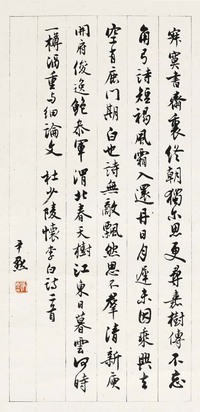 寂寞書齋裏終朝獨爾思更尋嘉樹傳不忘
角弓詩短褐風霜入還丹日月遲未因乘興去
空有鹿門期白也詩無敵飄然思不羣清新庾
開府俊逸鮑參軍渭北春天樹江東日暮雲何時
一樽酒重与細論文 杜少陵懷李白詩二首
尹默